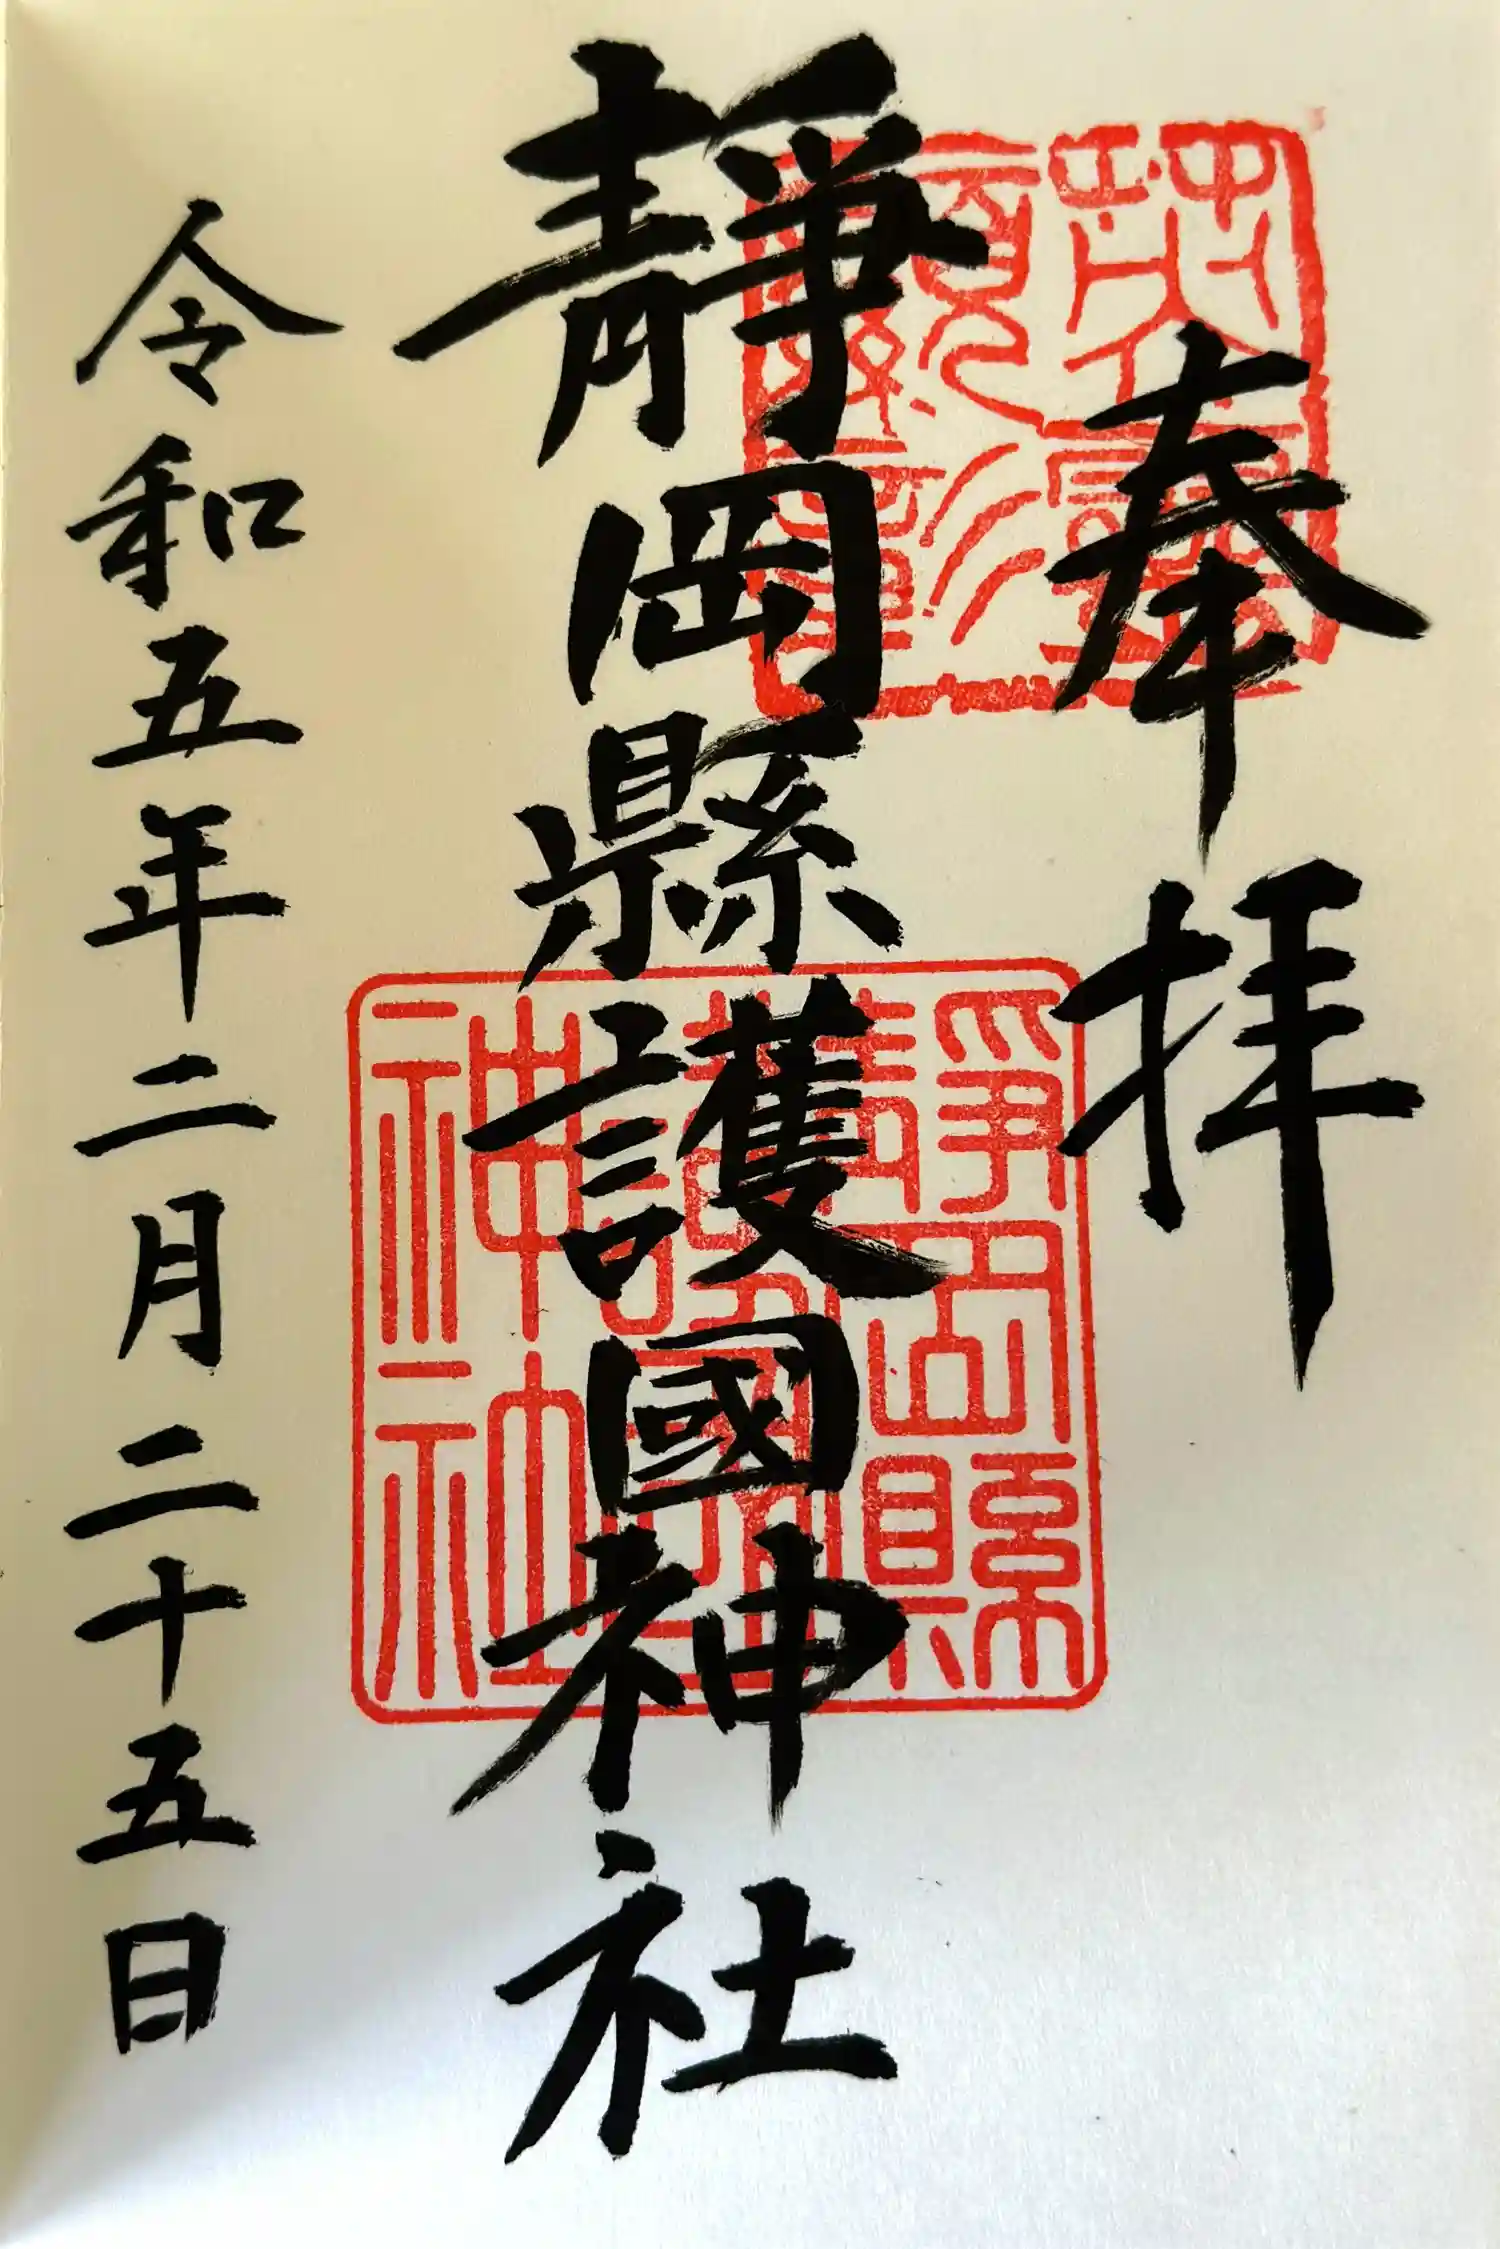 奉拝
靜岡縣護國神社
令和五年二月二十五日
靜岡縣
護國
神社